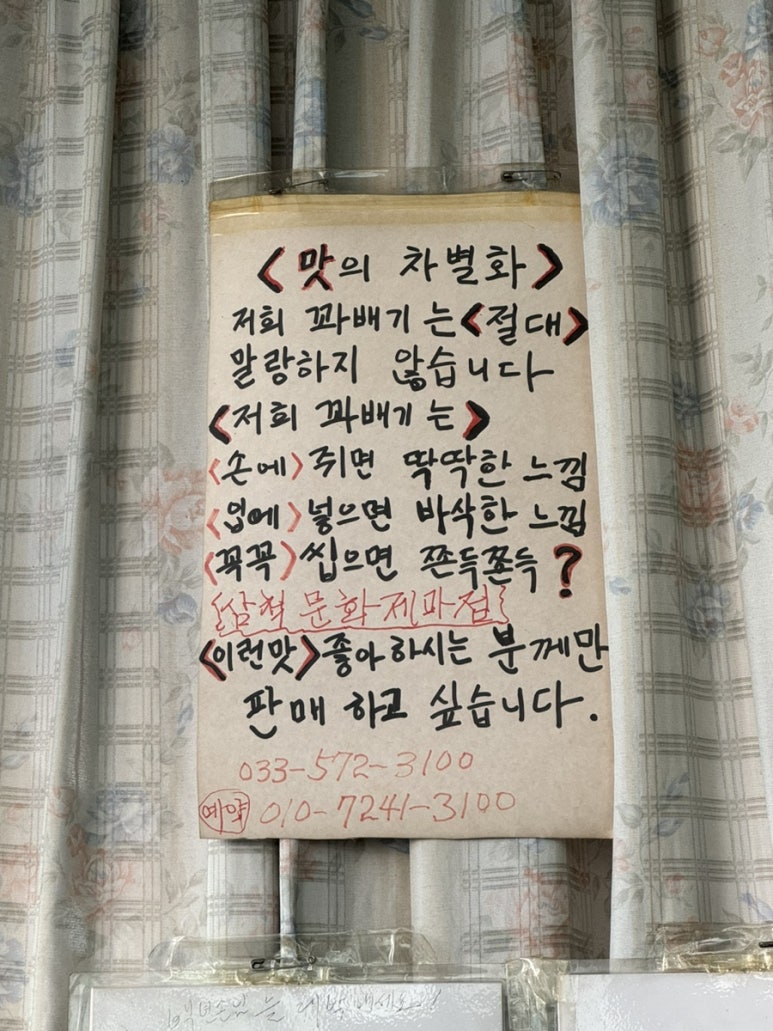 <맛의 차별화>
저희 꽈배기는 <절대>
말랑하지 않습니다
<저희 꽈배기는>
<손에> 쥐면 딱딱한 느낌
<입에> 넣으면 바삭한 느낌
<꼭꼭> 씹으면 쫀득쫀득?
삼척 문화제과점
<이런맛> 좋아하시는 분께만
판매 하고 싶습니다.
033-572-3100
예약 010-7241-3100